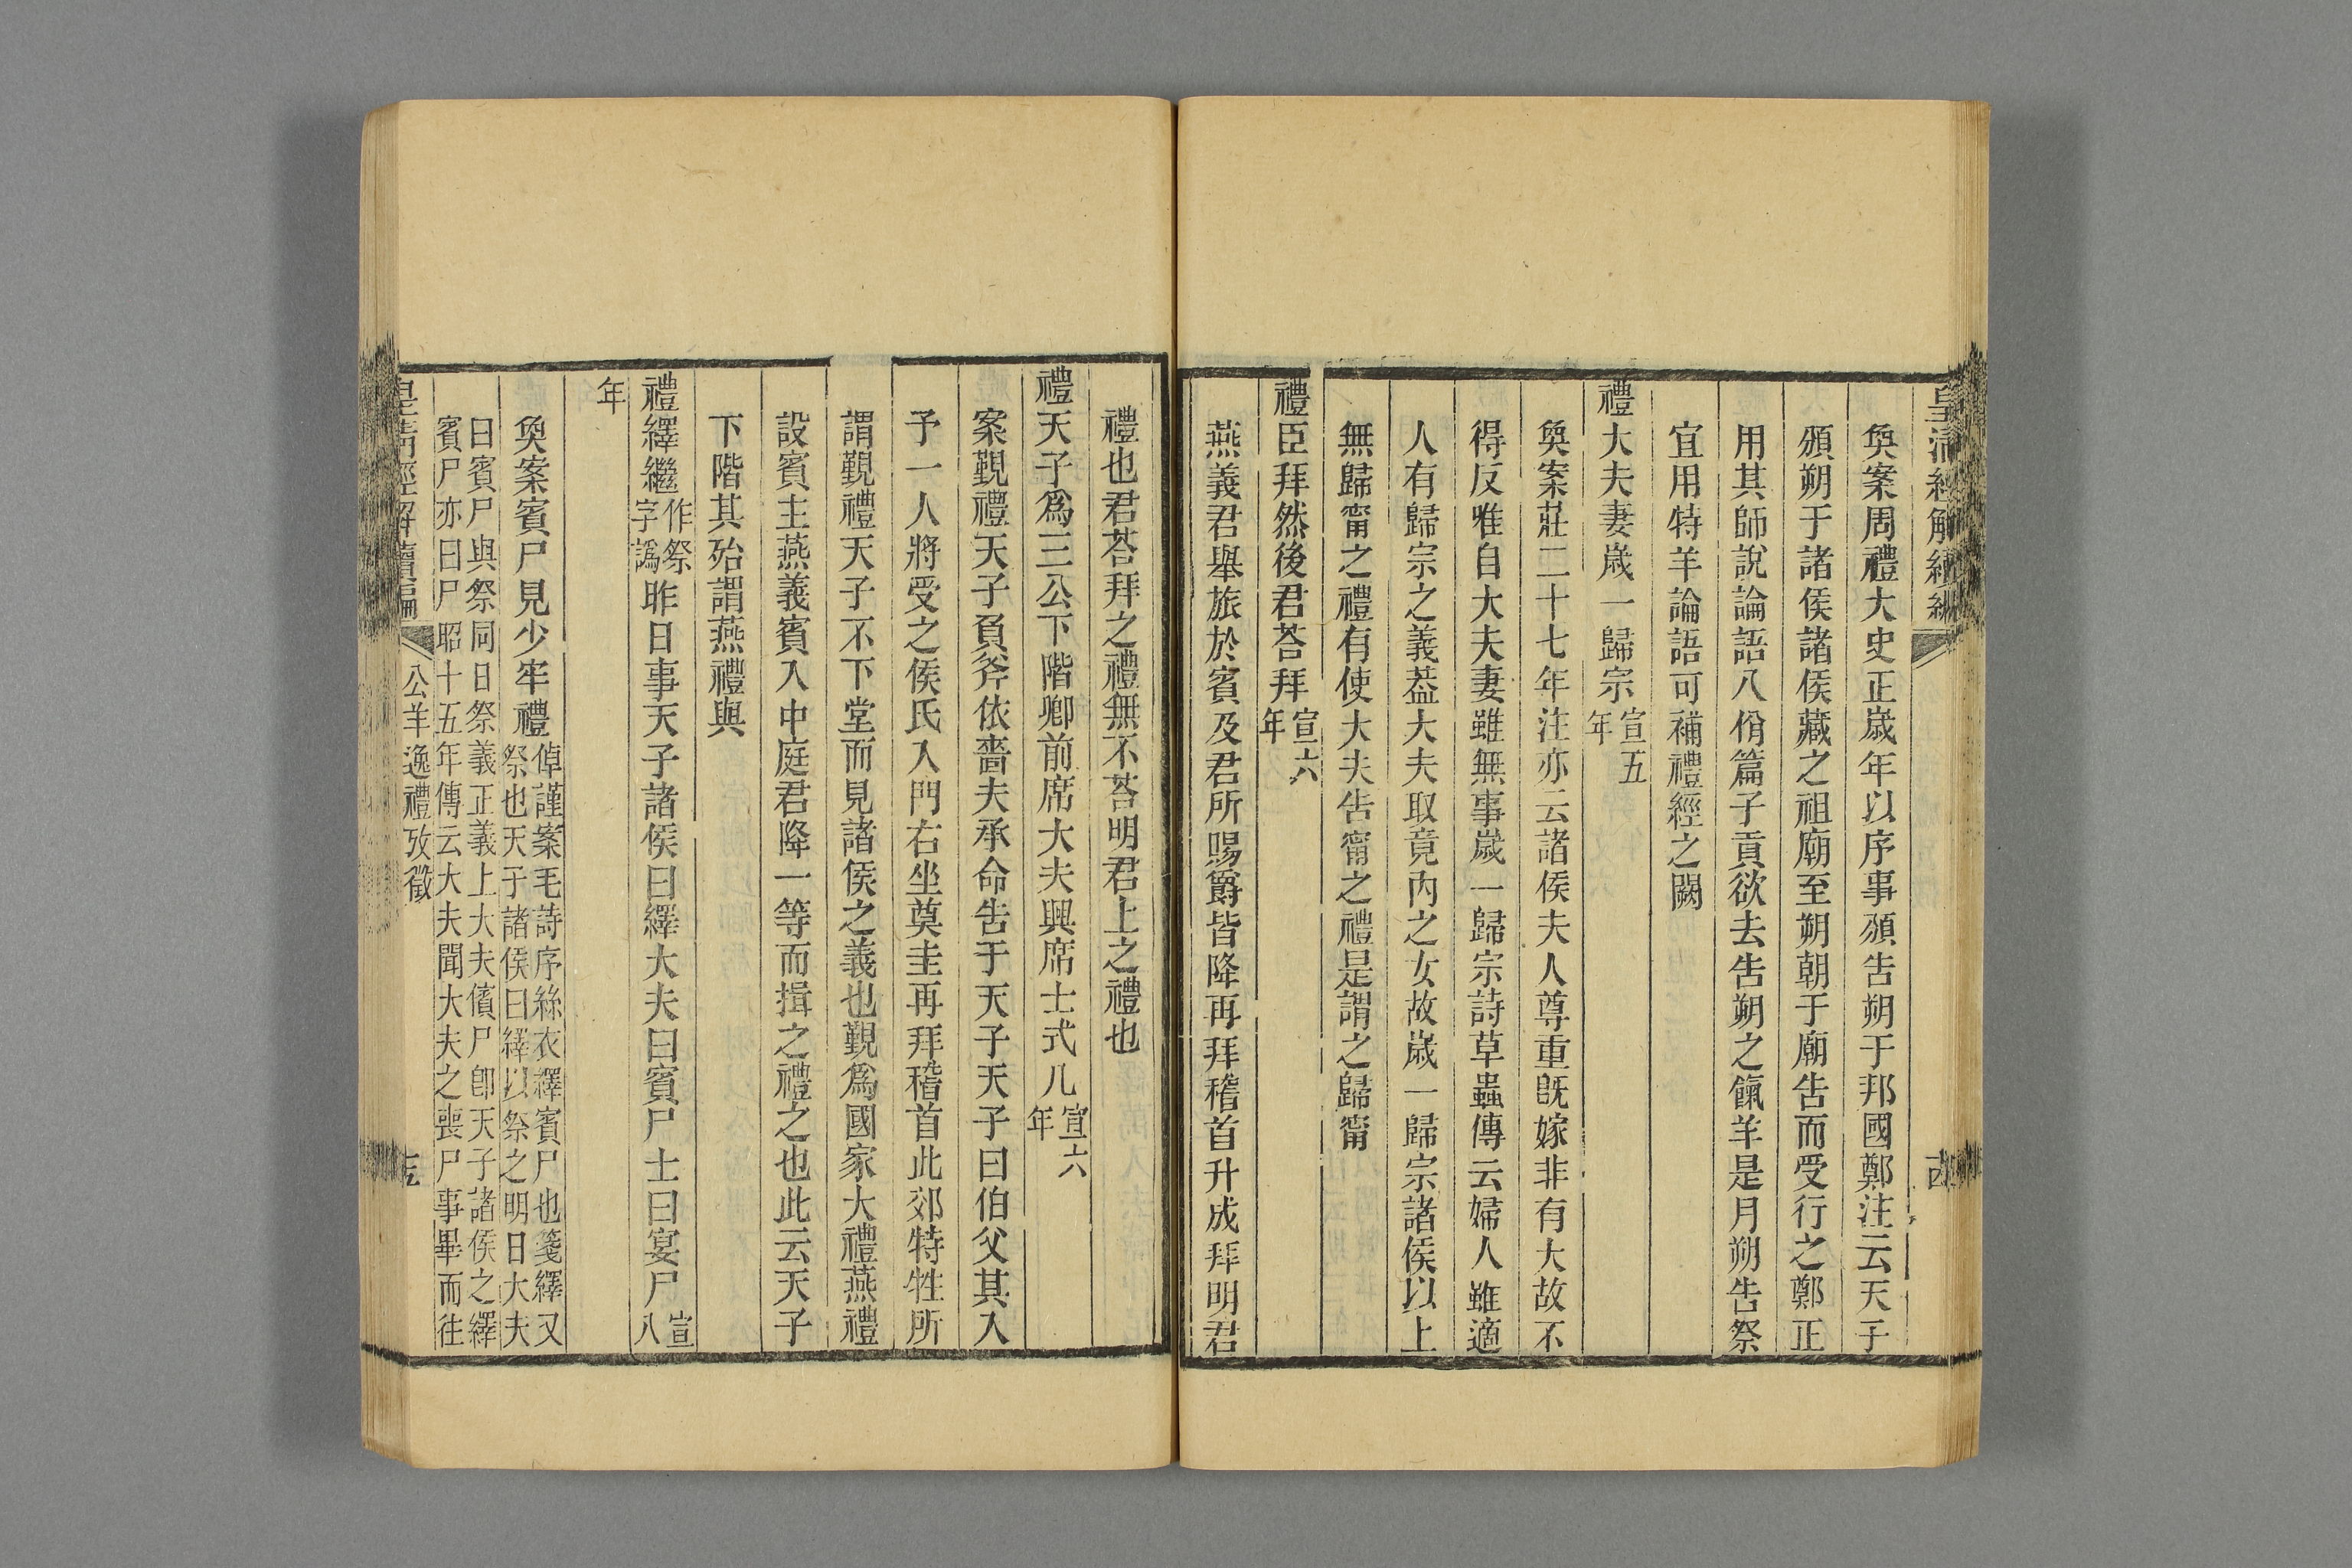 皇清經解續編
奐案周禮大史正歲年以序事頒告朔于邦國鄭注云天子
頒朔于諸侯諸侯藏之祖廟至朔朝于廟告而受行之鄭正
用其師說論語八佾篇子貢欲去告朔之餼羊是月朔告祭
宜用特羊論語可補禮經之闕
禮大夫妻歲一歸宗宣五年
奐案莊二十七年注亦云諸侯夫人尊重旣嫁非有大故不
得反唯自大夫妻雖無事歲一歸宗詩草蟲傳云婦人雖適
人有歸宗之義葢大夫取竟內之女故歲一歸宗諸侯以上
無歸甯之禮有使大夫告甯之禮是謂之歸甯
禮臣拜然後君荅拜宣六年
燕義君舉旅於賓及君所賜爵皆降再拜稽首升成拜明君
禮也君荅拜之禮無不荅明君上之禮也
禮天子爲三公下階卿前席大夫興席士式几宣六年
案覲禮天子負斧依嗇夫承命告于天子天子曰伯父其入
予一人將受之侯氏入門右坐奠圭再拜稽首此郊特牲所
謂覲禮天子不下堂而見諸侯之義也覲爲國家大禮燕禮
設賓主燕義賓入中庭君降一等而揖之禮之也此云天子
下階其殆謂燕禮與
禮繹繼作祭字譌昨日事天子諸侯曰繹大夫曰賓尸士曰宴尸宣八
年
奐案賓尸見少牢禮倬謹案毛詩序絲衣繹賓尸也箋繹又
祭也天子諸侯曰繹以祭之明日大夫
曰賓尸與祭同日祭義正義上大夫儐尸卽天子諸侯之繹
賓尸亦曰尸昭十五年傳云大夫聞大夫之喪尸事畢而往
皇清經解續編 公羊逸禮攷徵